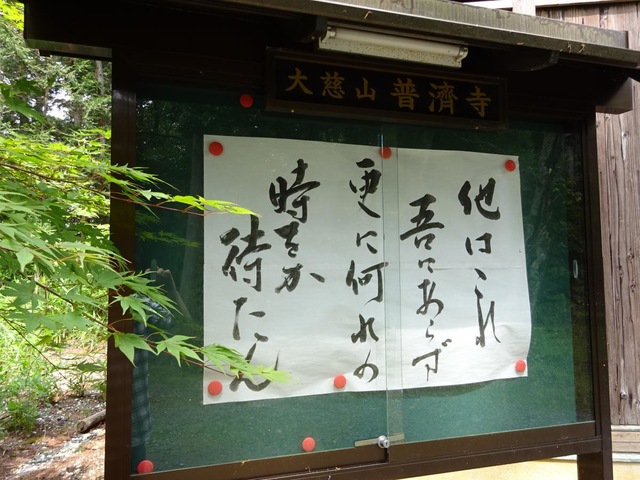 大慈山 普濟寺
他はこれ
吾にあらず
更に何れの
時をか
待たん